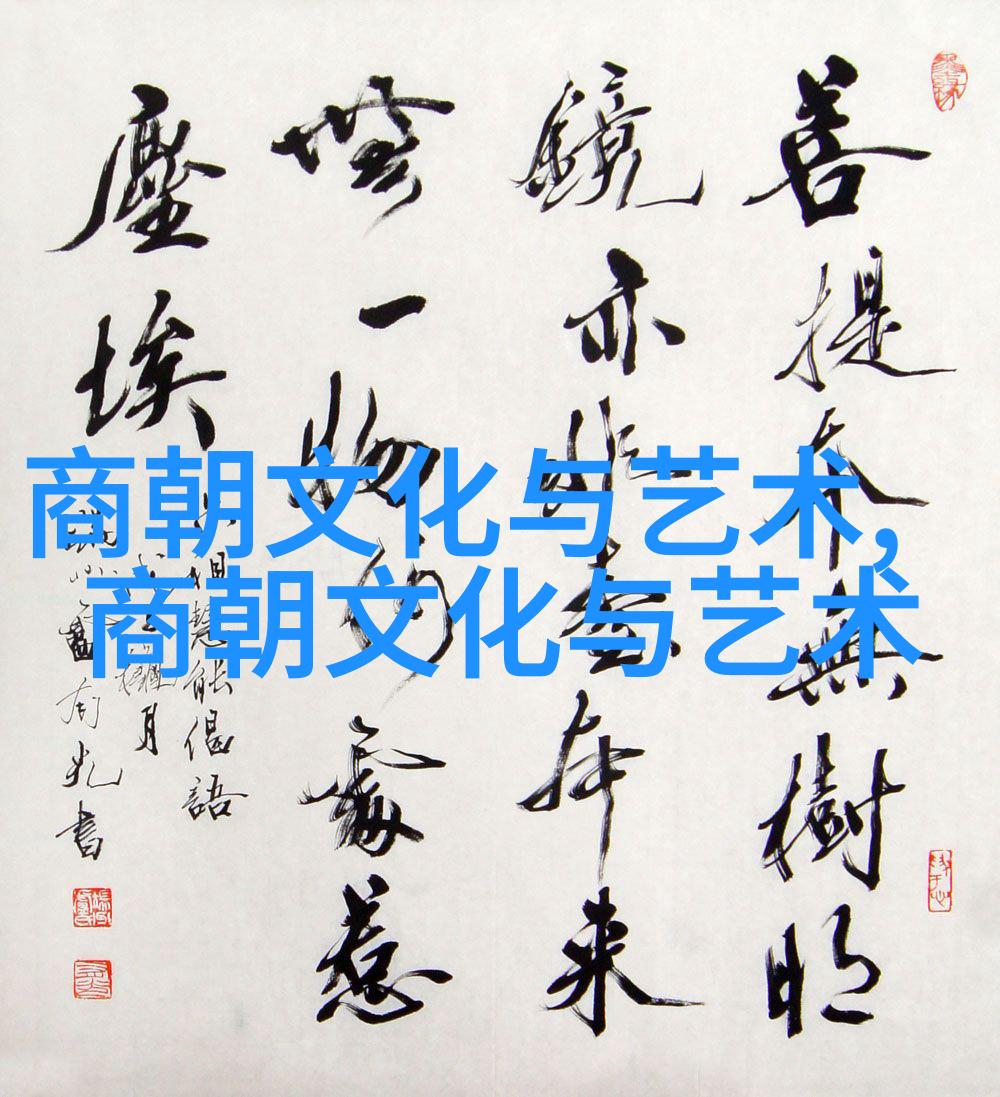 商朝文化与艺术,
商朝文化与艺术
菩提本無樹明
鏡亦非臺本來
無一物何處惹
塵埃
六祖慧能偈語
月
書